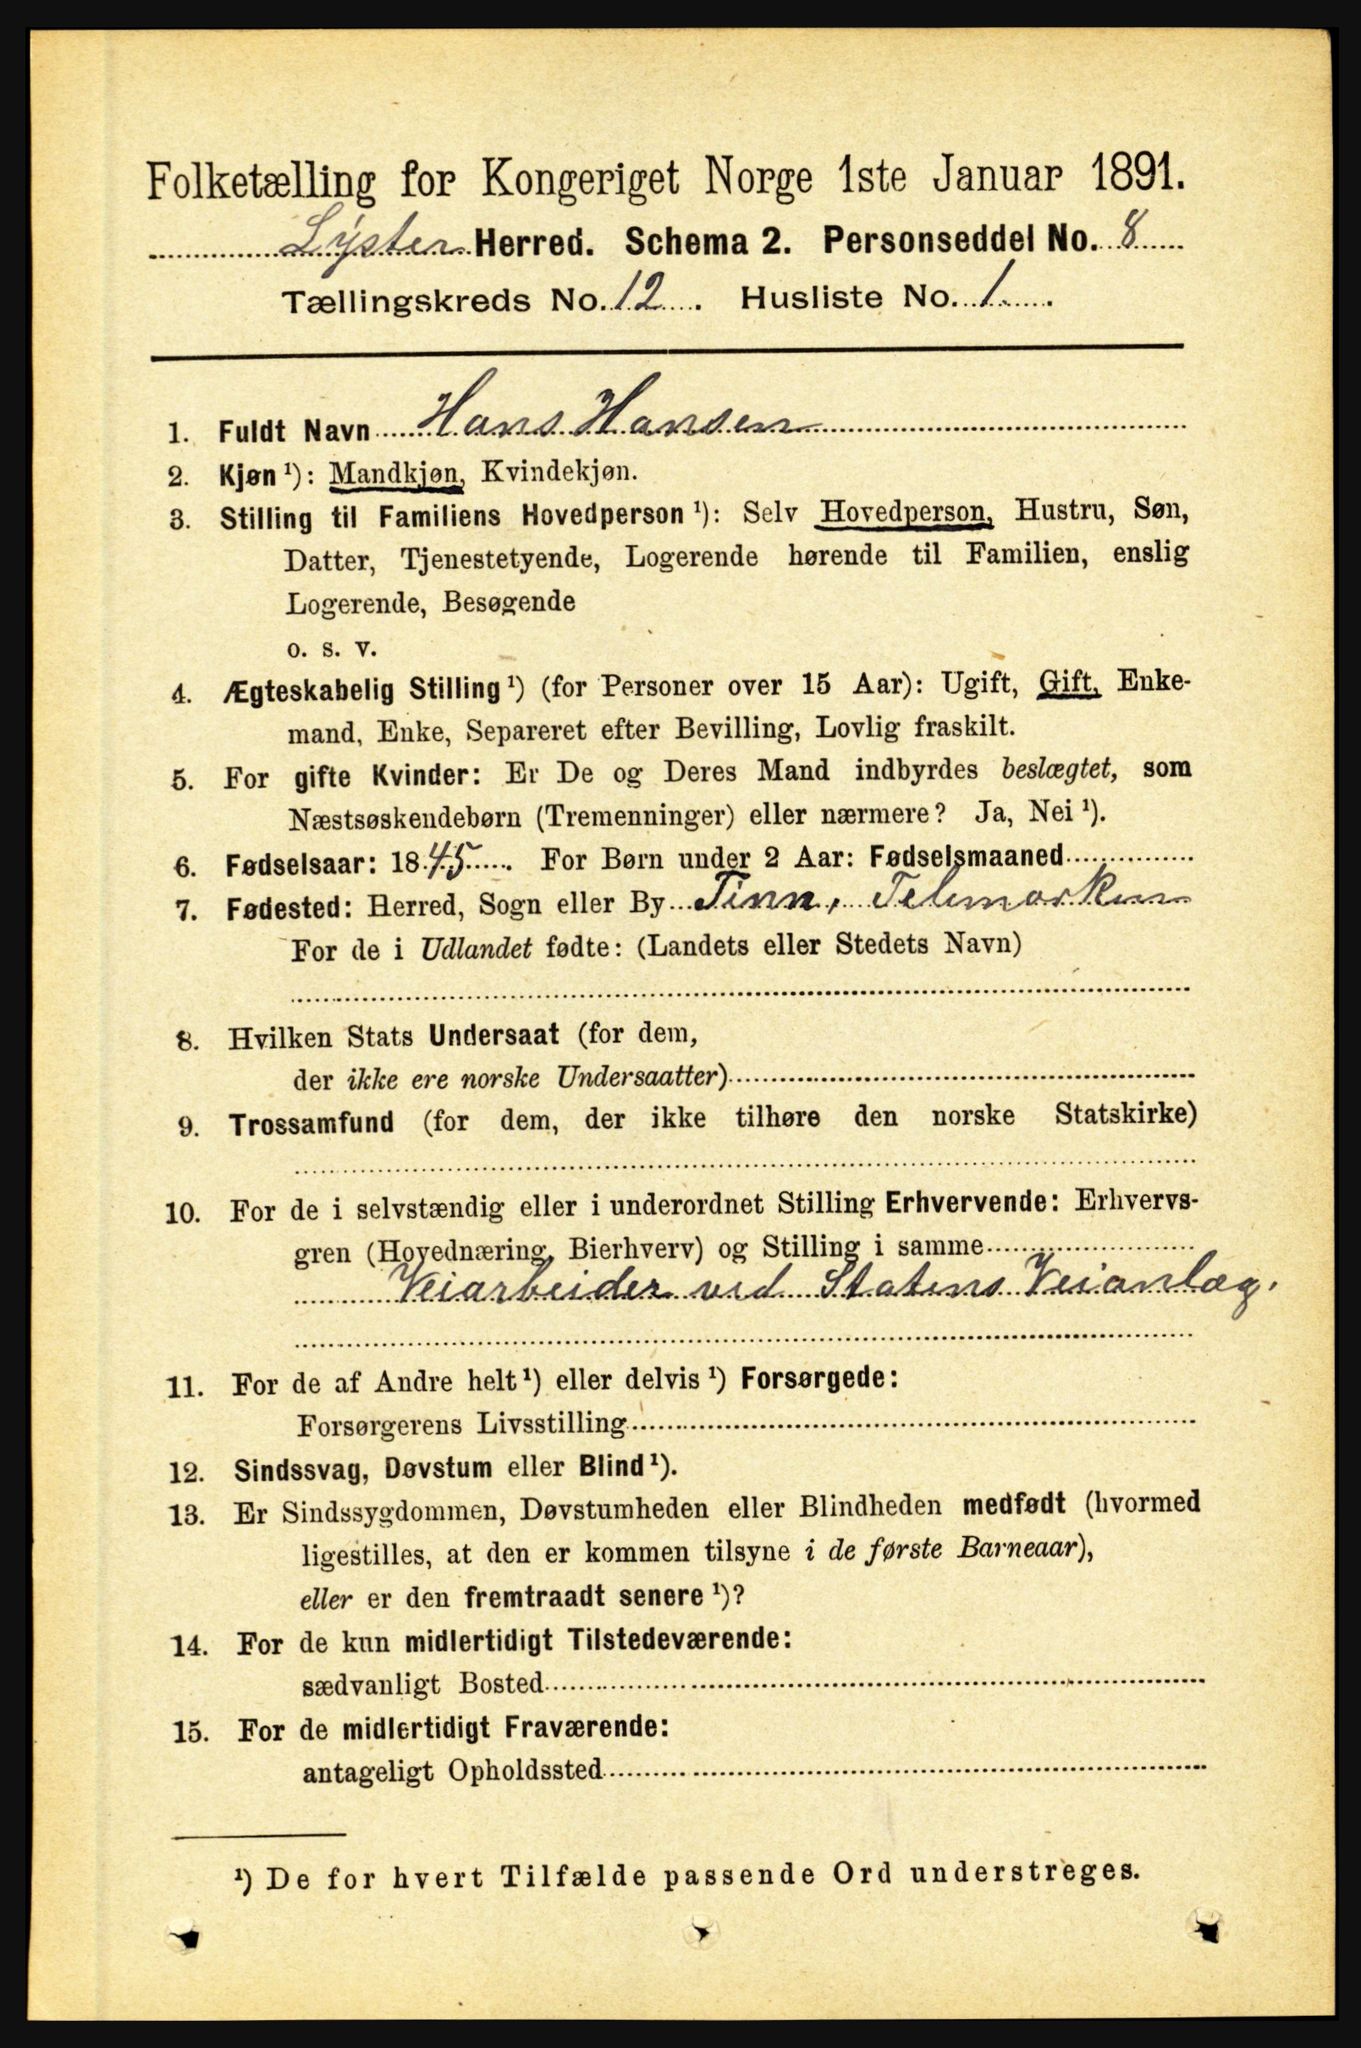 Folketælling for Kongeriget Norge 1ste Januar 1891.
Lyster Herred. Schema 2. Personseddel No. 8
Tællingskreds No. 12. Husliste No. 1.
1. Fuldt Navn Hans Hansen
2. Kjøn ¹): Mandkjøn, Kvindekjøn.
3. Stilling til Familiens Hovedperson ¹): Selv Hovedperson, Hustru, Søn,
Datter, Tjenestetyende, Logerende hørende til Familien, enslig
Logerende, Besøgende
o. s. v.
4. Ægteskabelig Stilling ¹) (for Personer over 15 Aar): Ugift, Gift, Enke-
mand, Enke, Separeret efter Bevilling, Lovlig fraskilt.
5. For gifte Kvinder: Er De og Deres Mand indbyrdes beslægtet, som
Næstsøskendebørn (Tremenninger) eller nærmere? Ja, Nei ¹).
6. Fødselsaar: 1845. For Børn under 2 Aar: Fødselsmaaned
7. Fødested: Herred, Sogn eller By Tinn, Telemarken
For de i Udlandet fødte: (Landets eller Stedets Navn)
8. Hvilken Stats Undersaat (for dem,
der ikke ere norske Undersaatter)
9. Trossamfund (for dem, der ikke tilhøre den norske Statskirke)
10. For de i selvstændig eller i underordnet Stilling Erhvervende: Erhvervs-
gren (Hovednæring, Bierhverv) og Stilling i samme
Veiarbeider ved Statens Veianlæg.
11. For de af Andre helt ¹) eller delvis ¹) Forsørgede:
Forsørgerens Livsstilling
12. Sindssvag, Døvstum eller Blind ¹).
13. Er Sindssygdommen, Døvstumheden eller Blindheden medfødt (hvormed
ligestilles, at den er kommen tilsyne i de første Barneaar),
eller er den fremtraadt senere ¹)?
14. For de kun midlertidigt Tilstedeværende:
sædvanligt Bosted
15. For de midlertidigt Fraværende:
antageligt Opholdssted
¹) De for hvert Tilfælde passende Ord understreges.